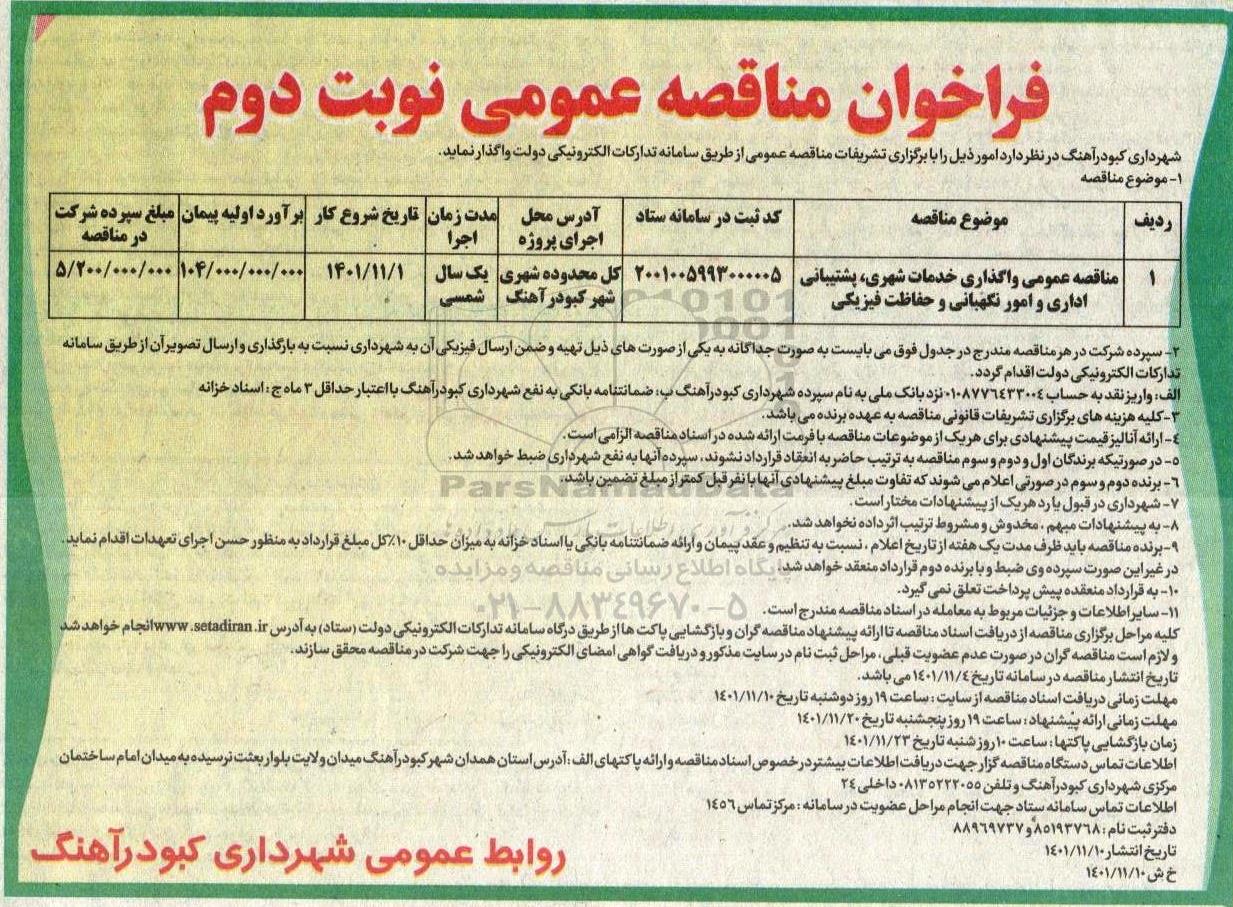 فراخوان مناقصه عمومی نوبت دوم
شهرداری کبودرآهنگ در نظر دارد امور ذیل را با برگزاری تشریفات مناقصه عمومی از طریق سامانه تدارکات الکترونیکی دولت واگذار نماید.
۱- موضوع مناقصه
ردیف موضوع مناقصه کد ثبت در سامانه ستاد آدرس محل اجرای پروژه مدت زمان اجرا تاریخ شروع کار برآورد اولیه پیمان مبلغ سپرده شرکت در مناقصه
۱ مناقصه عمومی واگذاری خدمات شهری، پشتیبانی اداری و امور نگهبانی و حفاظت فیزیکی ۲۰۰۱۰۰۵۹۹۳۰۰۰۰۰۵ کل محدوده شهری شهر کبودرآهنگ یک سال شمسی ۱۴۰۱/۱۱/۱ ۱۰۴/۰۰۰/۰۰۰/۰۰۰ ۵/۲۰۰/۰۰۰/۰۰۰
۲- سپرده شرکت در هر مناقصه مندرج در جدول فوق می بایست به صورت جداگانه به یکی از صورت های ذیل تهیه و ضمن ارسال فیزیکی آن به شهرداری نسبت به بارگذاری و ارسال تصویر آن از طریق سامانه
تدارکات الکترونیکی دولت اقدام گردد.
الف: واریز نقد به حساب ۰۱۰۸۷۷۶۴۳۳۰۰۴ نزد بانک ملی به نام سپرده شهرداری کبودرآهنگ ب: ضمانتنامه بانکی به نفع شهرداری کبودرآهنگ با اعتبار حداقل ۳ ماه ج: اسناد خزانه
۳-کلیه هزینه های برگزاری تشریفات قانونی مناقصه به عهده برنده می باشد.
۴- ارائه آنالیز قیمت پیشنهادی برای هر یک از موضوعات مناقصه با فرمت ارائه شده در اسناد مناقصه الزامی است.
۵- در صورتیکه برندگان اول و دوم و سوم مناقصه به ترتیب حاضر به انعقاد قرارداد نشوند، سپرده آنها به نفع شهرداری ضبط خواهد شد.
۶- برنده دوم و سوم در صورتی اعلام می شوند که تفاوت مبلغ پیشنهادی آنها با نفر قبل کمتر از مبلغ تضمین باشد.
۷- شهرداری در قبول یا رد هر یک از پیشنهادات مختار است.
۸- به پیشنهادات مبهم ، مخدوش و مشروط ترتیب اثر داده نخواهد شد.
۹-برنده مناقصه باید ظرف مدت یک هفته از تاریخ اعلام ، نسبت به تنظیم و عقد پیمان و ارائه ضمانتنامه بانکی یا اسناد خزانه به میزان حداقل ۱۰٪کل مبلغ قرارداد به منظور حسن اجرای تعهدات اقدام نماید.
در غیر این صورت سپرده وی ضبط و با برنده دوم قرارداد منعقد خواهد شد.
۱۰- به قرارداد منعقده پیش پرداخت تعلق نمی گیرد.
۱۱- سایر اطلاعات و جزئیات مربوط به معامله در اسناد مناقصه مندرج است.
کلیه مراحل برگزاری مناقصه از دریافت اسناد مناقصه تا ارائه پیشنهاد مناقصه گران و بازگشایی پاکت ها از طریق درگاه سامانه تدارکات الکترونیکی دولت (ستاد) به آدرس www.setadiran.ir انجام خواهد شد
و لازم است مناقصه گران در صورت عدم عضویت قبلی، مراحل ثبت نام در سایت مذکور و دریافت گواهی امضای الکترونیکی را جهت شرکت در مناقصه محقق سازند.
تاریخ انتشار مناقصه در سامانه تاریخ ۱۴۰۱/۱۱/۴ می باشد.
مهلت زمانی دریافت اسناد مناقصه از سایت : ساعت ۱۹ روز دوشنبه تاریخ ۱۴۰۱/۱۱/۱۰
مهلت زمانی ارائه پیشنهاد: ساعت ۱۹ روز پنجشنبه تاریخ ۱۴۰۱/۱۱/۲۰
زمان بازگشایی پاکتها: ساعت ۱۰ روز شنبه تاریخ ۱۴۰۱/۱۱/۲۳
اطلاعات تماس دستگاه مناقصه گزار جهت دریافت اطلاعات بیشتر در خصوص اسناد مناقصه و ارائه پاکتهای الف: آدرس استان همدان شهر کبودرآهنگ میدان ولایت بلوار بعثت نرسیده به میدان امام ساختمان
مرکزی شهرداری کبودرآهنگ و تلفن ۰۸۱۳۵۲۲۲۰۵۵ داخلی ۲۴
اطلاعات تماس سامانه ستاد جهت انجام مراحل عضویت در سامانه : مرکز تماس ۱۴۵۶
دفتر ثبت نام : ۸۵۱۹۳۷۶۸ و ۸۸۹۶۹۷۳۷
تاریخ انتشار ۱۴۰۱/۱۱/۱۰
خ ش ۱۴۰۱/۱۱/۱۰
روابط عمومی شهرداری کبودرآهنگ
ParsNamadData
پایگاه اطلاع رسانی مناقصه و مزایده
۰۲۱-۸۸۳۴۹۶۷۰-۵